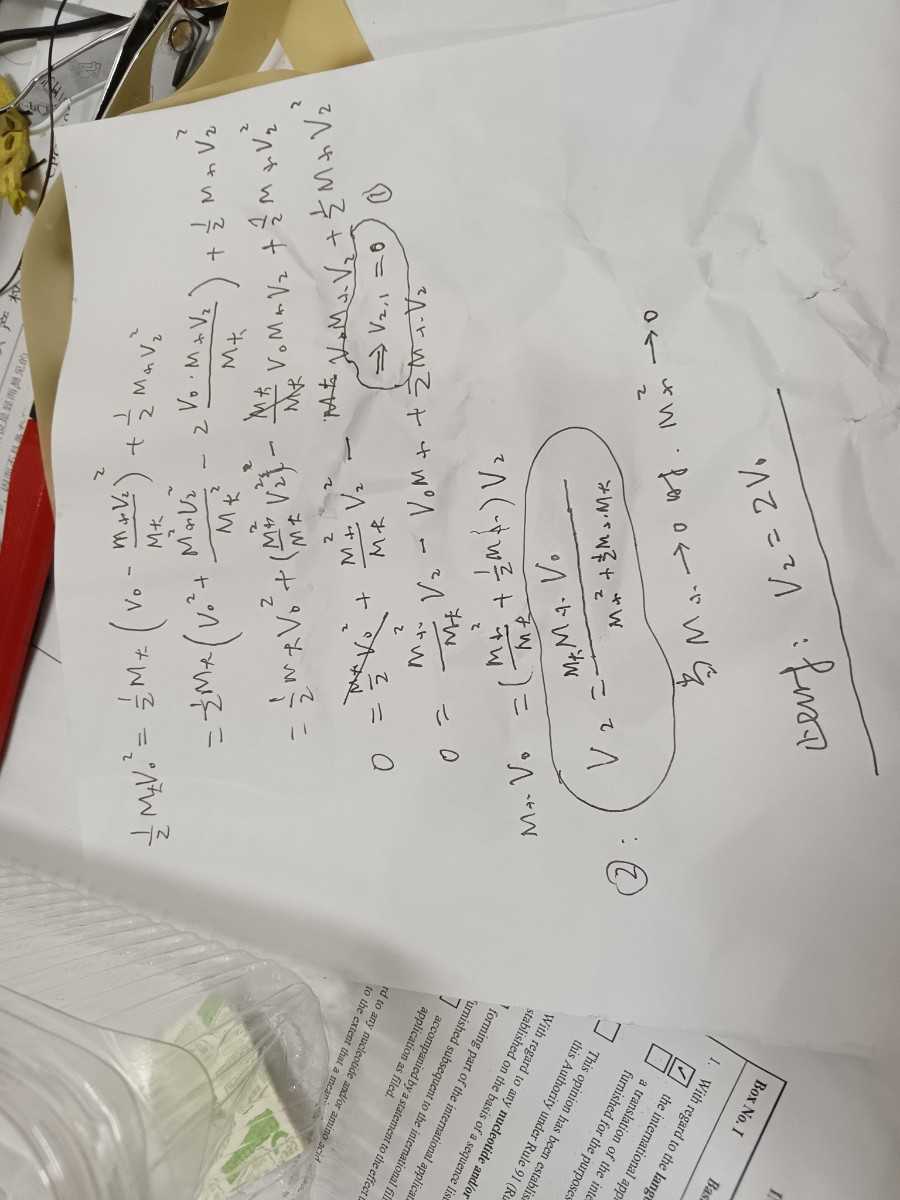 ½ M大V₀² = ½ M大 (V₀ - m小V₂²/M大) + ½ M小V₂²
= ½M大 (V₀² + M小²V₂²/M大² - 2 V₀·M小V₂/M大) + ½ M小V₂²
= ½ M大V₀² + (M小²/M大 V₂²) - M大/M大 V₀M小V₂ + ½ M小V₂²
0 = + M小²/M大 V₂² - V₀M小V₂ + ½ M小V₂²
⇒ V₂,₁ = 0 ①
0 = M小²/M大 V₂ - V₀M小 + ½ M小V₂
M小V₀ = (M小²/M大 + ½M小) V₂
②: V₂ = M大M小V₀ / M小² + ½M小·M大
当 M小 → 0 时. M小² → 0
此时: V₂ = 2V₀
Box No. I
Bas
1. With regard to the lang
the international app
a translation of the inte
furnished for the purposes
This opinion has been establis
this Authority under Rule 91 (Ru
With regard to any nucleotide and/or
stablished on the basis of a sequence lis
forming part of the international applica
urnished subsequent to the international fil
accompanied by a statement to the effect
application as filed.
rd to any nucleotide and/or amino acid
to the extent that a mean